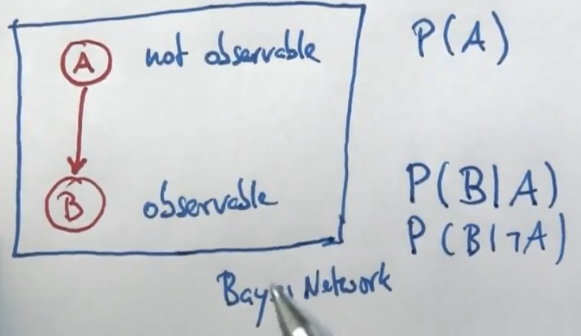 A not observable P(A)
B observable P(B|A)
P(B|¬A)
Bayes Network